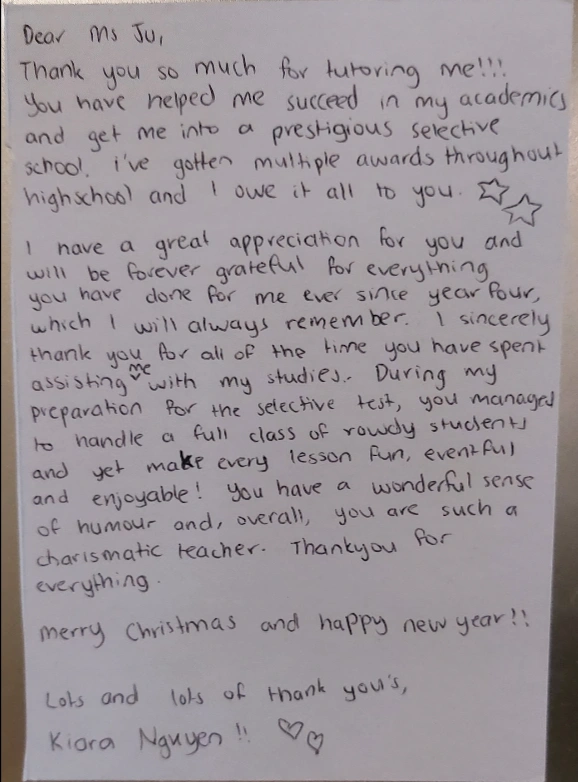 Dear Ms Ju,
Thank you so much for tutoring me!!!
You have helped me succeed in my academics
and get me into a prestigious selective
school. i've gotten multiple awards throughout
highschool and I owe it all to you.
I have a great appreciation for you and
will be forever grateful for everything
you have done for me ever since year four,
which I will always remember. I sincerely
thank you for all of the time you have spent
assisting me with my studies. During my
preparation for the selective test, you managed
to handle a full class of rowdy students
and yet make every lesson fun, eventful
and enjoyable! You have a wonderful sense
of humour and, overall, you are such a
charismatic teacher. Thankyou for
everything.
Merry Christmas and happy new year!!
Lots and lots of thank you's,
Kiara Nguyen !!